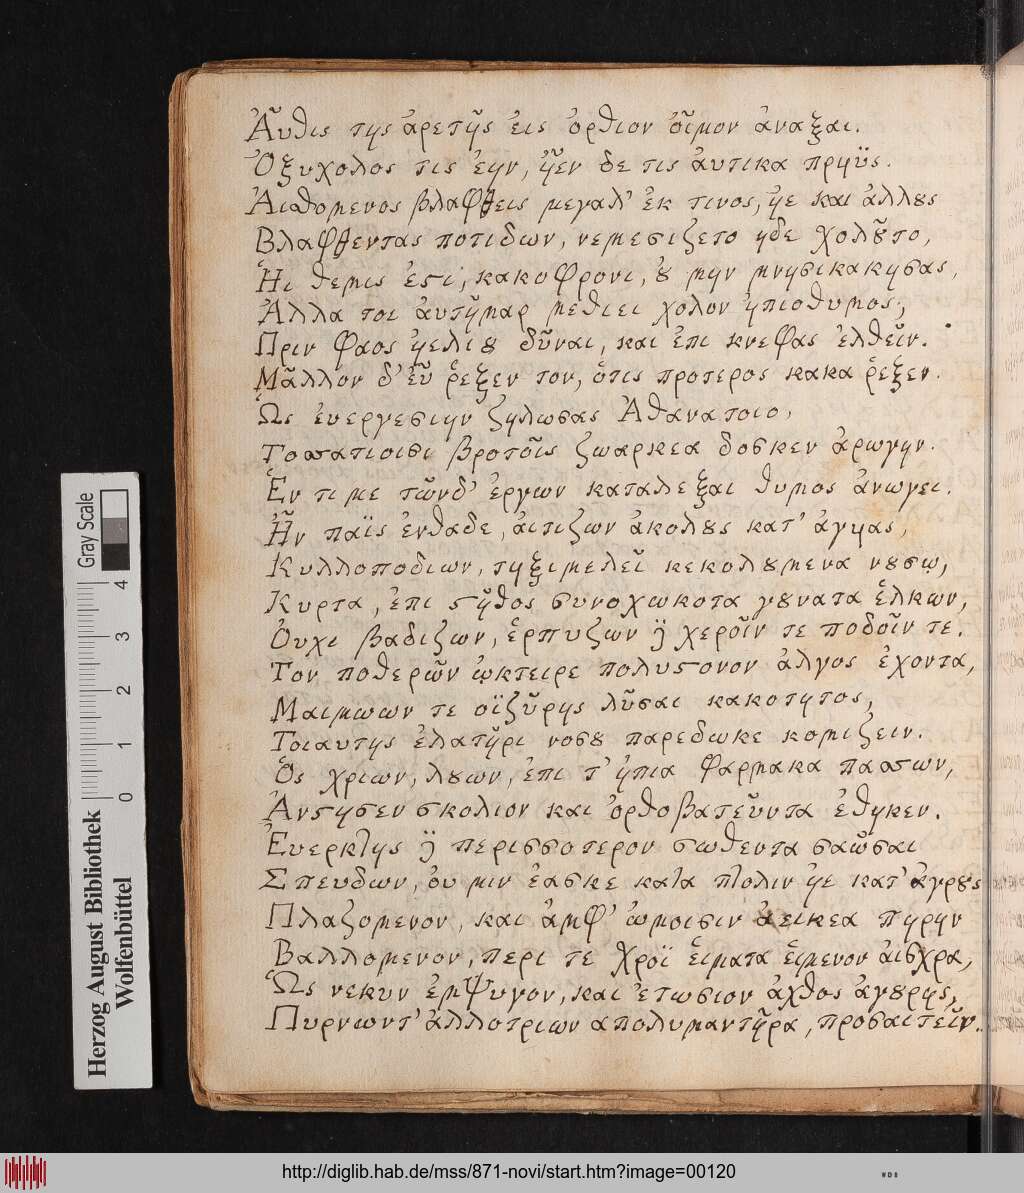 Ἀῦθις της ἀρετῆς ἐις ὀρθιον ὀῖμον ἀναξαι.
Ὀξυχολος τις ἐην, ἦεν δε τις ἀυτικα πρηῢς.
Ἀιθομενος βλαφθεις μεγαλ' ἐκ τινος, ἠε και ἀλλȣς
Βλαφθεντας ποτιδων, νεμεσιζετο ηδε χολȣ͂το,
Ἥι θεμις ἐϛι, κακοφρονι, ȣ̓ μην μνησικακησας,
Ἀλλα τοι ἀυτῆμαρ μεθιει χολον ἠπιοθυμος,
Πριν φαος ἠελιȣ δῦναι, και ἐπι κνεφας ἐλθεῖν.
Μᾶλλον δ' ἐῦ ῥεξεν τον, ὁτις προτερος κακα ῥεξεν.
Ὡς ἐυεργεσιην ζηλωσας Ἀθανατοιο,
Τοπατιοισι βροτοῖς ζωαρκεα δοσκεν ἀρωγην.
Ἑν τι με τῶνδ' ἐργων καταλεξαι θυμος ἀνωγει.
Ἦν παῒς ἐνθαδε, ἀιτιζων ἀκολȣς κατ' ἀγυιας,
Κυλλοποδιων, τηξιμελεῖ κεκολȣμενα νȣσῳ,
Κυρτα, ἐπι ϛῆθος συνοχωκοτα γȣνατα ἑλκων,
Ὀυχι βαδιζων, ἑρπυζων ϗ χεροῖν τε ποδοῖν τε.
Τον ποθερῶν ᾠκτειρε πολυϛονον ἀλγος ἐχοντα,
Μαιμωων τε οϊζῦρης λῦσαι κακοτητος,
Τοιαυτης ἐλατῆρι νοσȣ παρεδωκε κομιζειν.
Ὁς χριων, λȣων, ἐπι τ' ἠπια φαρμακα πασσων,
Ἀνϛησεν σκολιον και ὀρθοβατεῦντα ἐθηκεν.
Ἐυερκτης ϗ περισσοτερον σωθεντα σαῶσαι
Σπευδων, ὀυ μιν ἐασκε κατα πτολιν ἠε κατ' ἀγρȣς
Πλαζομενον, και ἀμφ' ὠμοισιν ἀεικεα πηρην
Βαλλομενον, περι τε χροῒ ἑιματα ἑιμενον ἀισχρα,
Ὡς νεκυν ἐμψυχον, και ἐτωσιον ἀχθος ἀρȣρης,
Πυρνωντ' ἀλλοτριων απολυμαντῆρα, προσαιτεῖν.
Gray Scale
0 1 2 3 4
Herzog August Bibliothek
Wolfenbüttel
http://diglib.hab.de/mss/871-novi/start.htm?image=00120
WDB